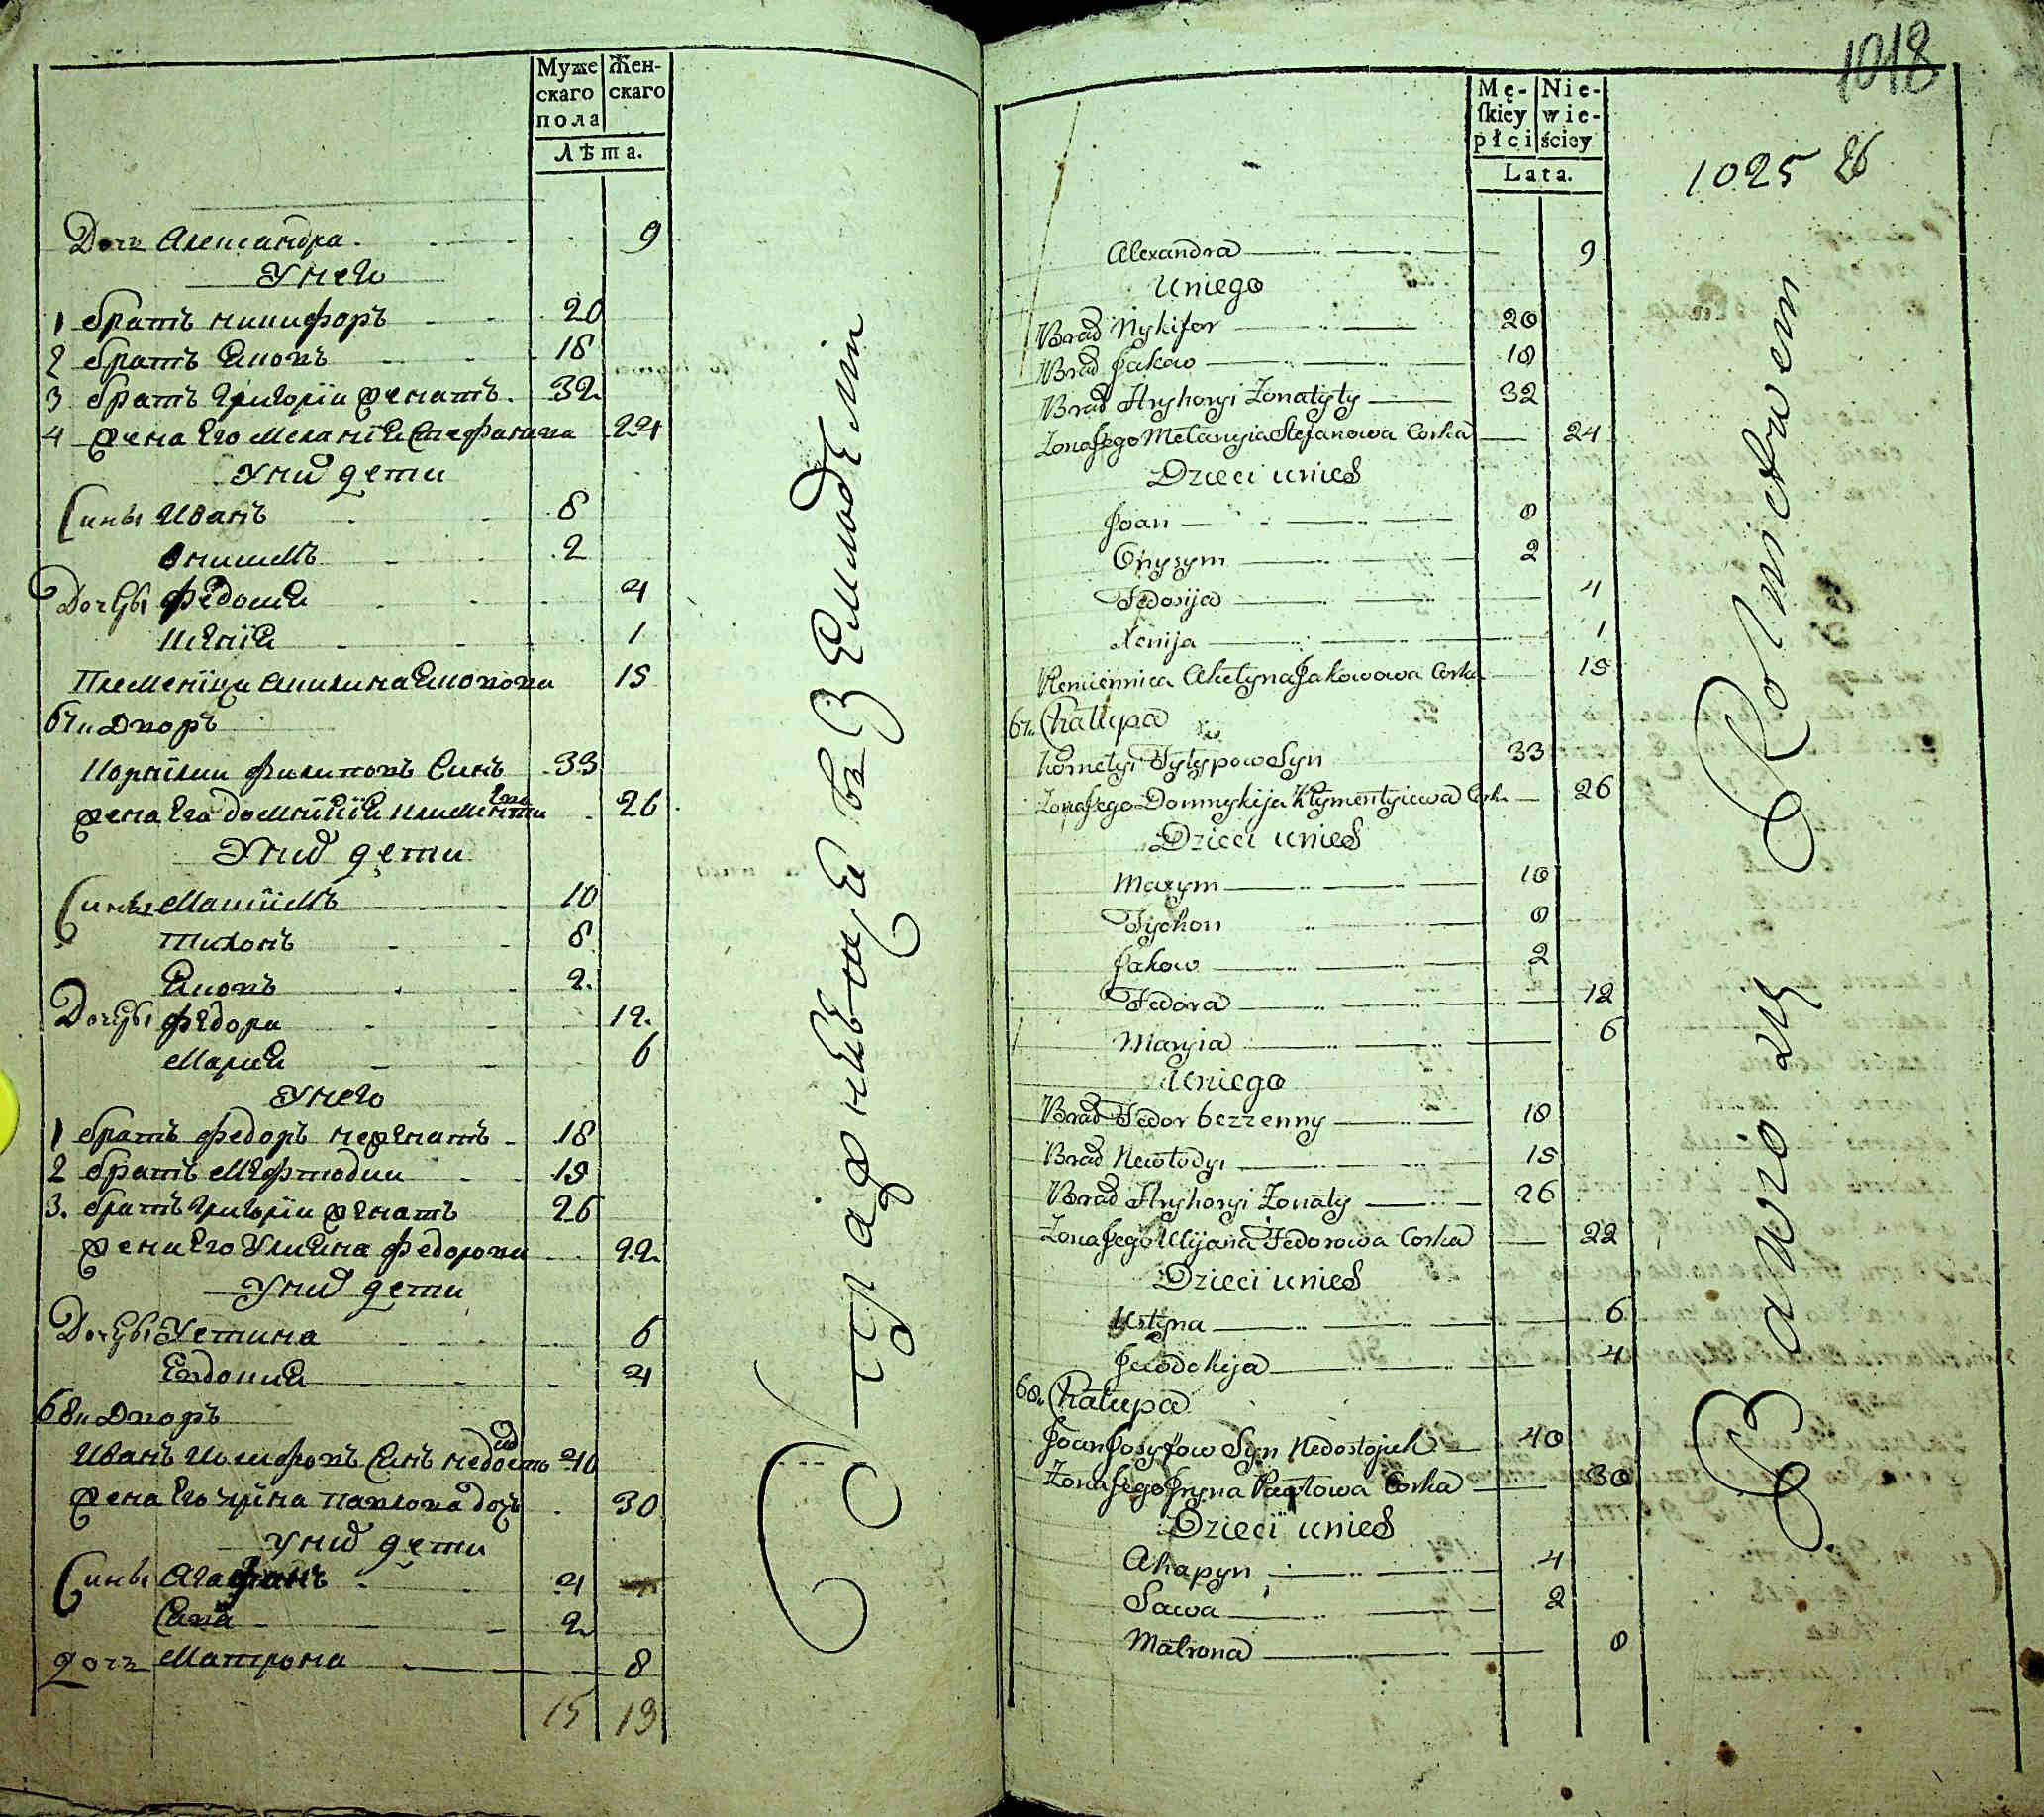 Муже Жен-
скаго скаго
пола
Лѣта.
Дочь Александра 9
У него
1 братъ никифоръ 20
2 братъ Яковъ 18
3 братъ григорїи женатъ 32
4 жена Его меланїя стефанова 24
У них дети
Сины Иванъ 8
Онисимъ 2
Дочеры федосия 4
ксенїя 1
Племеница акилина Яковова 15
67й Дворъ
корнїлии филиповъ Синъ 33
жена Его домнїкїя климентиева 26
У них дети
Сины Максїмъ 10
тихонъ 8
Яковъ 2
Дочеры федора 12
Мария 6
У него
1 братъ федоръ неженатъ 18
2 братъ Мефтодии 15
3. братъ григорїи женатъ 26
жена Его Улияна федорова 22
У них дети
Дочеры Устина 6
Евдокия 4
68й Дворъ
Иванъ иосифовъ Синъ недостоюк 40
жена Его ирїна павлова доч 30
У них дети
Сины Агафонъ 4
Сава 2
дочь Матрона 8
15 19
Упражняется въ Землоделии
1018
Mę- Nie-
ſkiey wie-
płci ściey
Lata.
1025
Alexandra 9
Uniego
Brad Nykifor 20
Brad Jakow 18
Brad Hryhoryi Zonatyty 32
Zona Jego Melanyia Stefanowa Corka 24
Dzieci unich
Joan 8
Onysym 2
Fedosija 4
Xenija 1
Plemiennica Akelyna Jakowowa Corka 15
67. Chałupa
Kornelyi Fylypow Syn 33
Zona Jego Domnykija Klymentyiewa Cork. 26
Dzieci unich
Maxym 10
Tychon 8
Jakow 2
Fedora 12
Maryia 6
Uniego
Brad Fedor bezzenny 18
Brad Meftodyi 15
Brad Hryhoryi Zonaty 26
Zona Jego Ulijana Fedorowa Corka 22
Dzieci unich
Ustyna 6
Jewdokija 4
68. Chałupa
Joan Josyfow Syn Nedostojuk 40
Zona Jego Jryna Pawłowa Corka 30
Dzieci unich
Ahapyn 4
Sawa 2
Matrona 8
Bawio zię Rolnictwem